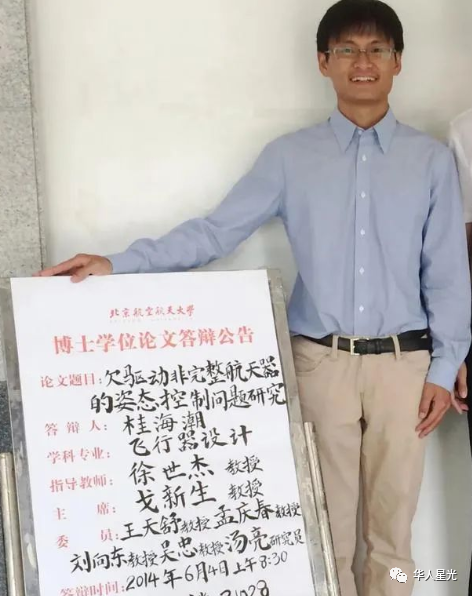 北京航空航天大学
博士学位论文答辩公告
论文题目:欠驱动非完整航天器
的姿态控制问题研究
答辩人:桂海潮
学科专业:飞行器设计
指导教师:徐世杰 教授
主席:戈新生 教授
委员:王天舒教授 孟庆春教授
刘向东教授 吴忠教授 汤亮研究员
答辩时间:2014年6月4日上午8:30
华人星光